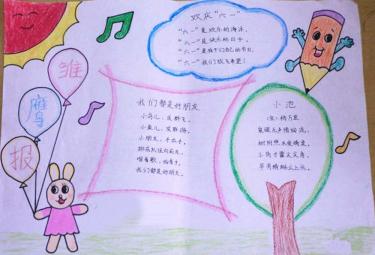 欢庆"六一"
"六一"是欢乐的海洋,
"六一"是快乐的日子,
"六一"是我们自己的节日,
"六一"我们欢天喜地!
雏
鹰
报
我们都是好朋友
小鸟儿,连群飞,
小鱼儿,
小朋友,手拉手,
唱着歌,拍着手,
我们都是好朋友。
小池
(宋)杨万里
泉眼无声惜细流,
树阴照水爱晴柔。
小荷才露尖尖角,
早有蜻蜓立上头。